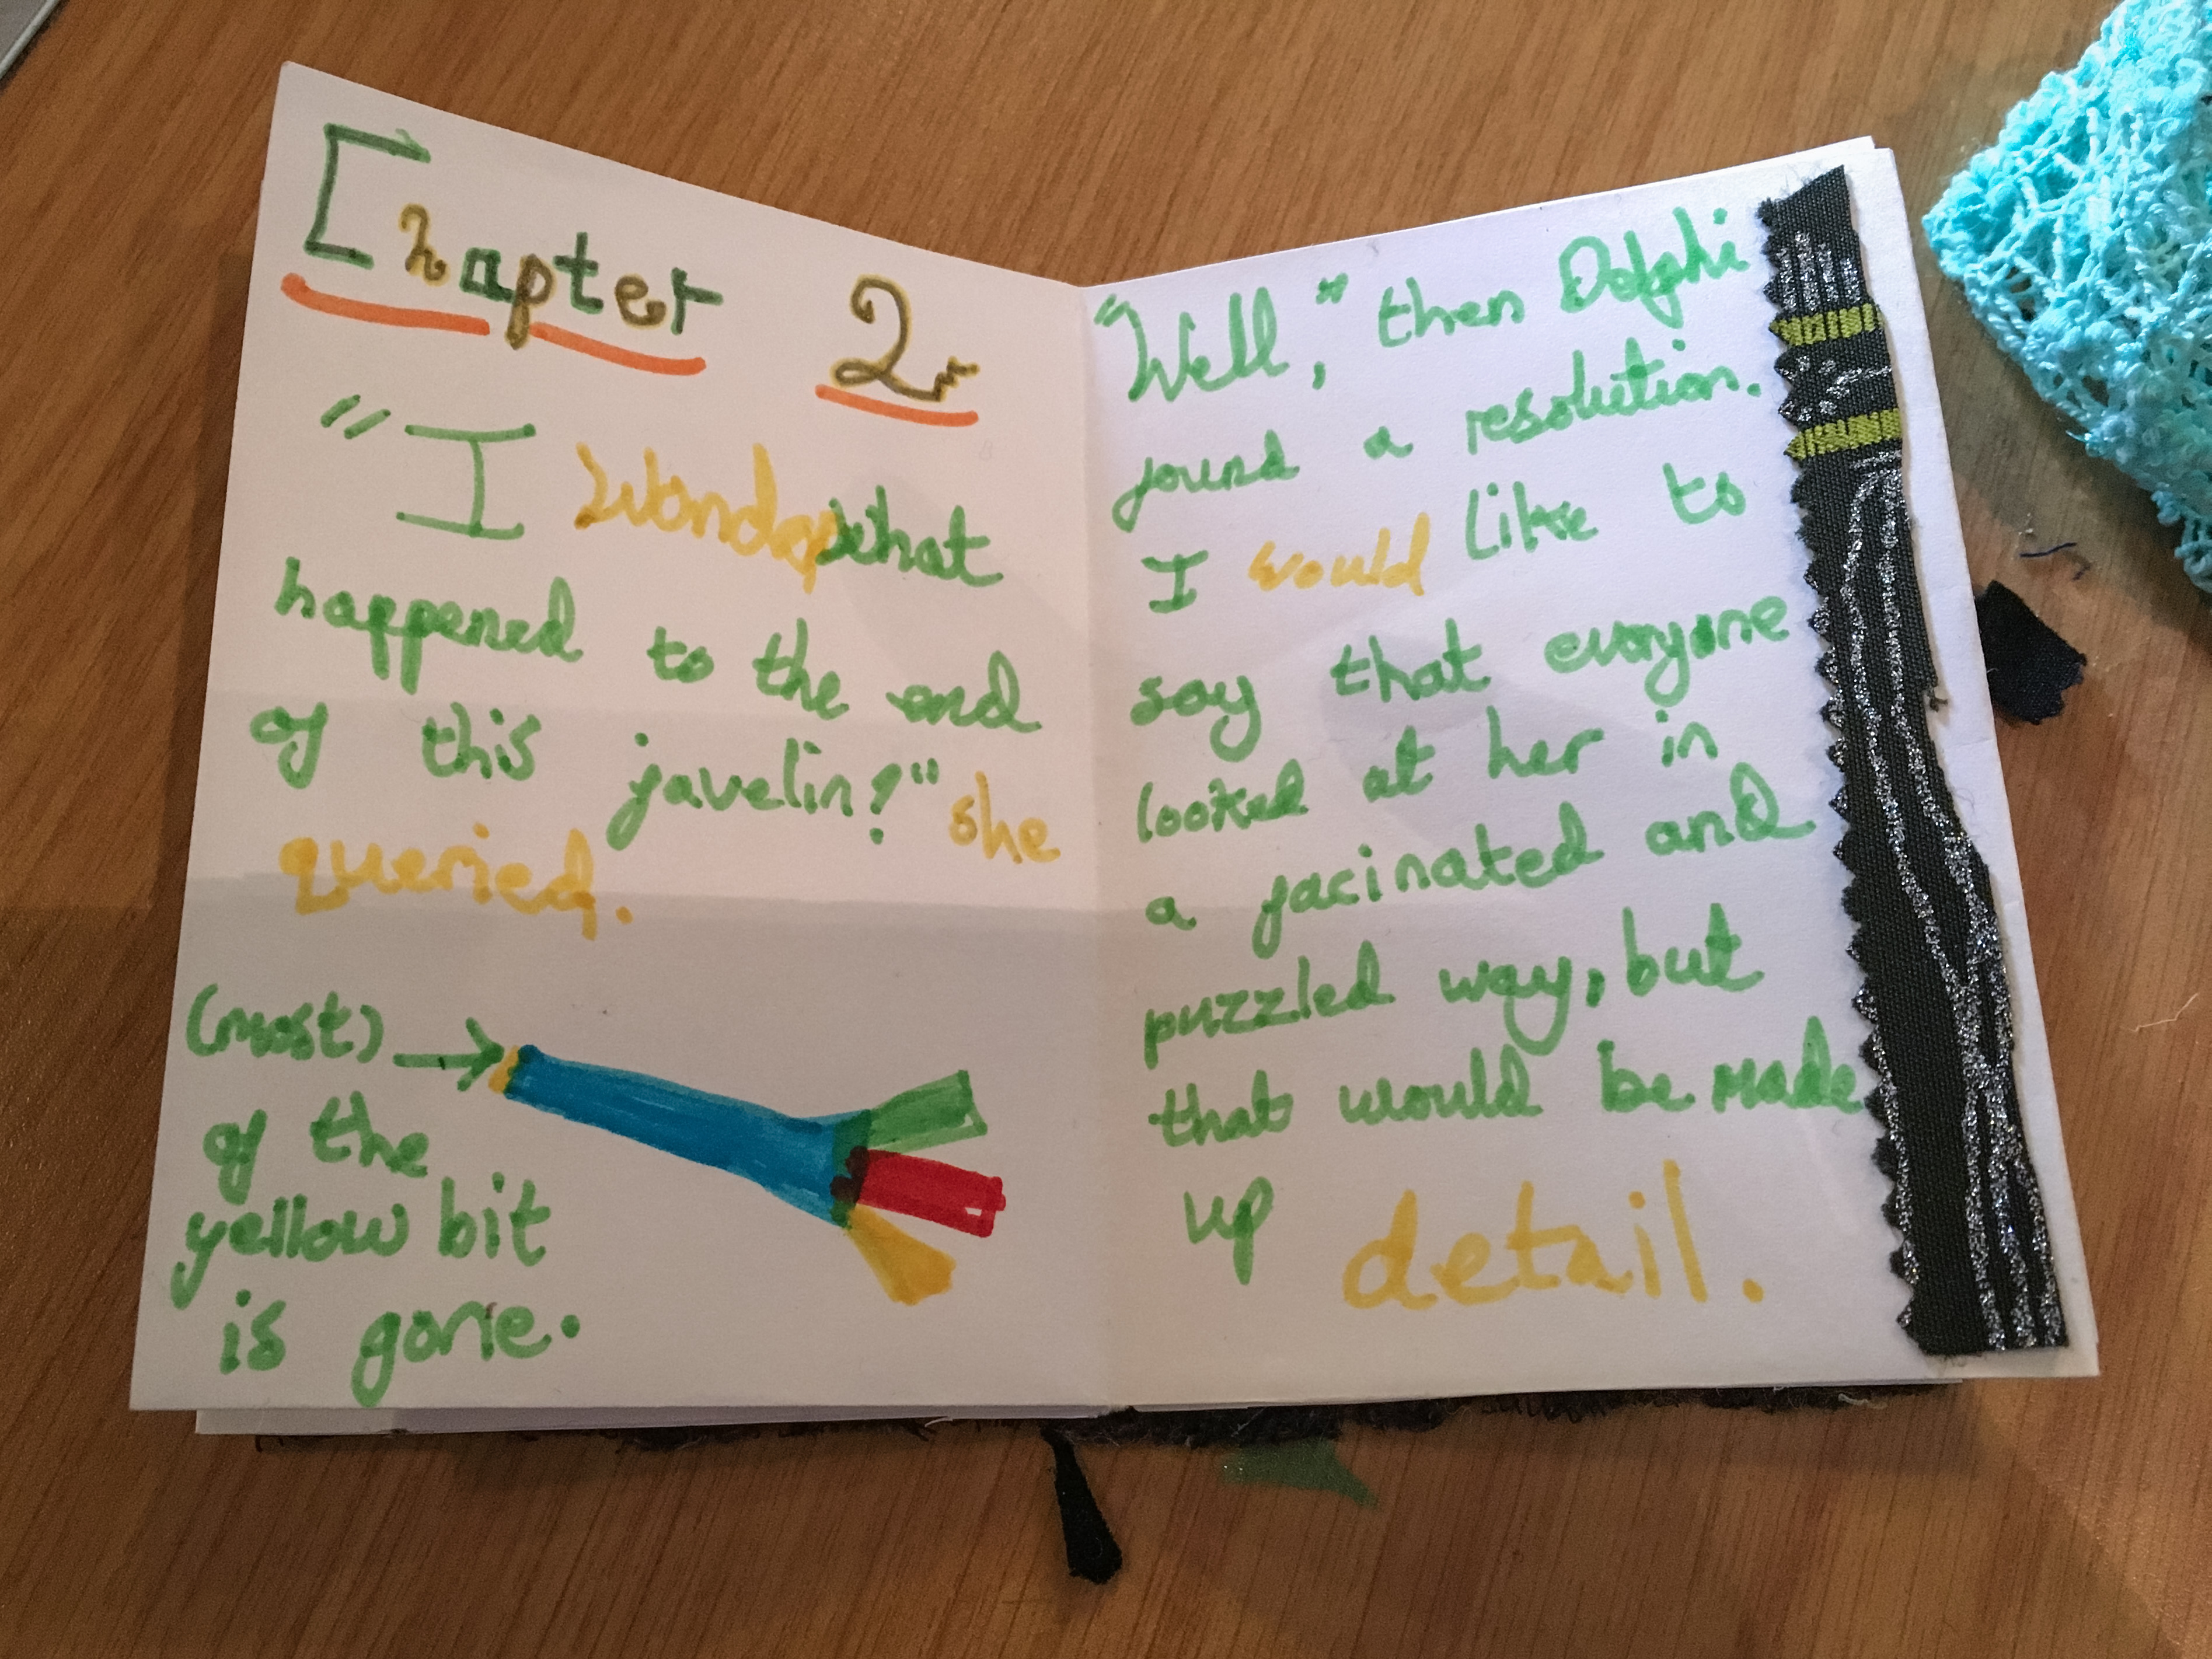 Chapter 2
"I Wonder what
happened to the end
of this javelin?" she
queried.
(most)
of the
yellow bit
is gone.
"Well," then Dolphi
found a resolution.
I would like to
say that everyone
looked at her in
a facinated and
puzzled way, but
that would be made
up detail.